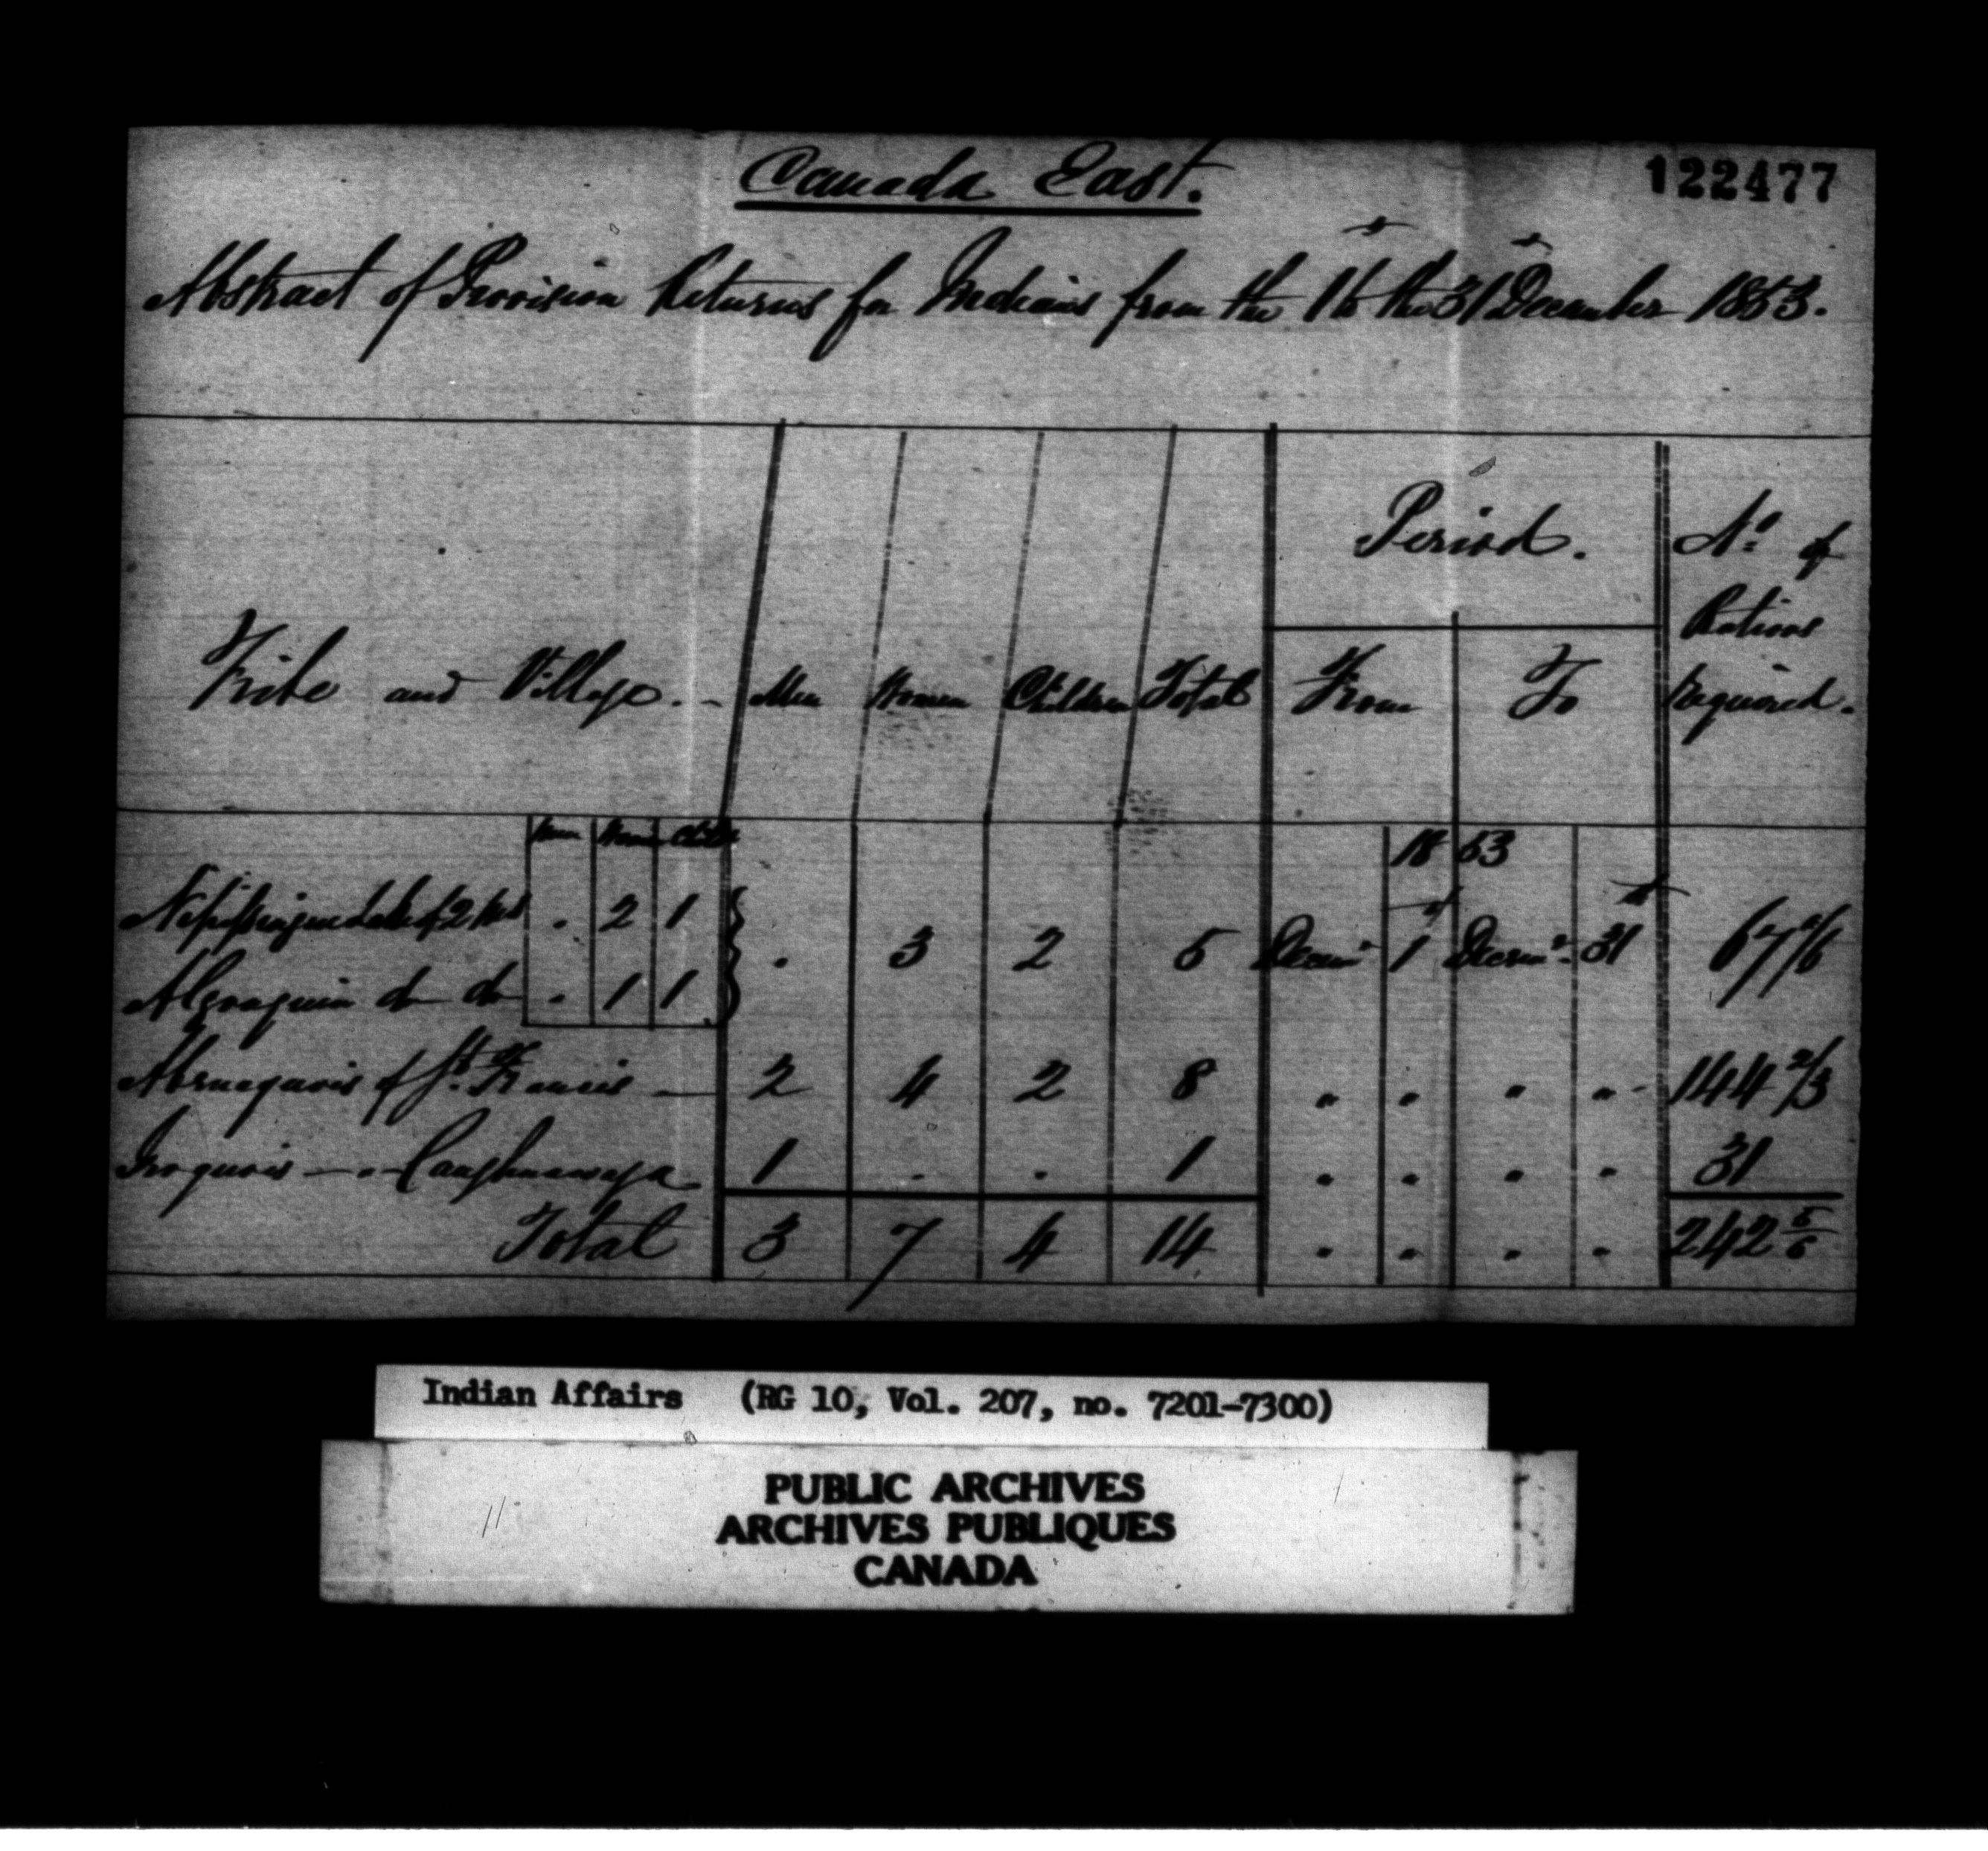 Canada East.
122477
Abstract of Provision Returns for Indians from the 1st to the 31st December 1853.
Period.
No. of
Rations
required.
Tribe and Village. Men Women Children Total From To
Men Women Child
1853
Nipissingue Lake of 2 Mts . 2 1
. 3 2 5 Decemr 1st Decemr 31st 67 1/6
Algonquin do do . 1 1
Abenaquois of St. Francis 2 4 2 8 " " " " 144 2/3
Iroquois " Caughnawaga 1 . . 1 " " " " 31
Total 3 7 4 14 " " " " 242 5/6
Indian Affairs (RG 10, Vol. 207, no. 7201-7300)
PUBLIC ARCHIVES
ARCHIVES PUBLIQUES
CANADA